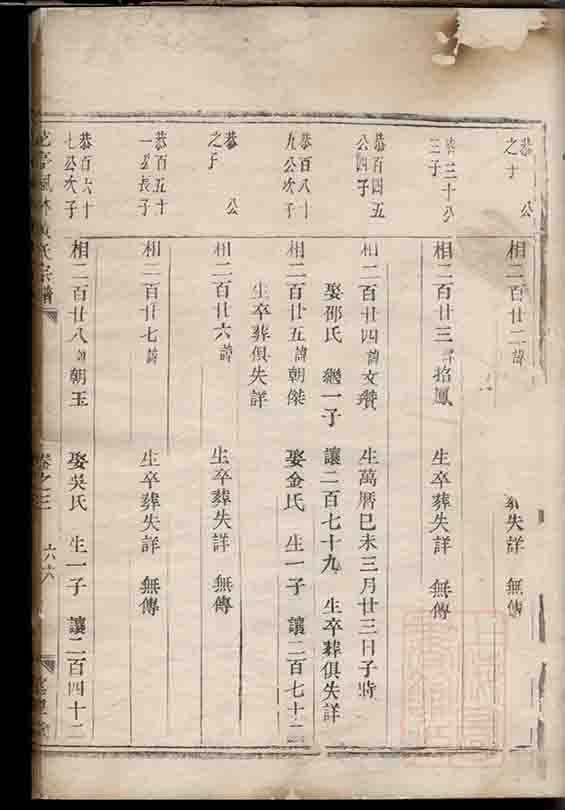 恭 公
之子
相二百廿二諱
葬失詳 無傳
三十八
三子
相二百廿三諱招鳳
生卒葬失詳 無傳
恭百四五
公四子
相二百廿四諱文瓚 生萬曆己未三月廿三日子時
娶邵氏 繼一子 讓二百七十九 生卒葬俱失詳
恭百八十
九公次子
相二百廿五諱朝傑 娶金氏 生一子 讓二百七十二
生卒葬俱失詳
恭 公
之子
相二百廿六諱
生卒葬失詳 無傳
恭百五十
一公長子
相二百廿七諱
生卒葬失詳 無傳
恭百六十
七公次子
相二百廿八諱朝玉 娶吳氏 生一子 讓二百四十二
氏宗譜
卷之三
六六